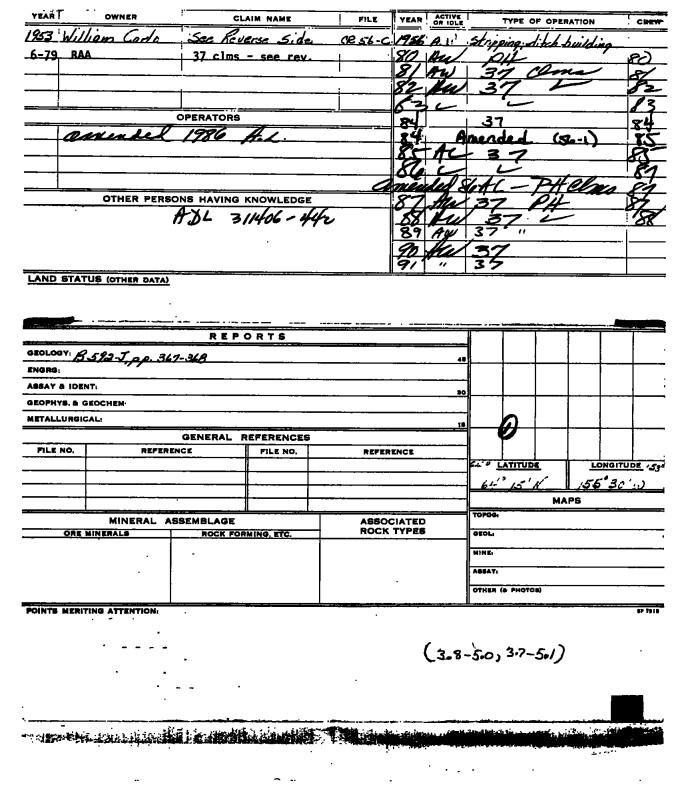 YEAR OWNER CLAIM NAME FILE YEAR ACTIVE OR IDLE TYPE OF OPERATION CREW
1953 William Carlo See Reverse Side CR 56-C 1956 A.1. Stripping; ditch building
6-79 RAA 37 clms - see rev. 80 AW PH 80
81 AW 37 Clms 81
82 AW 37 ✓ 82
83
OPERATORS 84 37 84
amended 1986 84 Amended (56-1) 85
85 AC 37 85
86
amended 86 AC - PH Clms 87
OTHER PERSONS HAVING KNOWLEDGE 87 AW 37 PH 87
ADL 311406-442 88 AW 37 ✓ 88
89 AW 37 "
90 AW 37
91 " 37
LAND STATUS (OTHER DATA)
REPORTS
GEOLOGY: B-592-J, pp. 367-368 45
ENGRG:
ASSAY & IDENT: 30
GEOPHYS. & GEOCHEM.
METALLURGICAL: 15
1
GENERAL REFERENCES
FILE NO. REFERENCE FILE NO. REFERENCE
LATITUDE LONGITUDE
64° 15' N 155° 30' W
MAPS
MINERAL ASSEMBLAGE ASSOCIATED ROCK TYPES
ORE MINERALS ROCK FORMING, ETC.
TOPOG:
GEOL:
MINE:
ASSAY:
OTHER (& PHOTOS)
POINTS MERITING ATTENTION:
(3.8-5.0, 3.7-5.1)